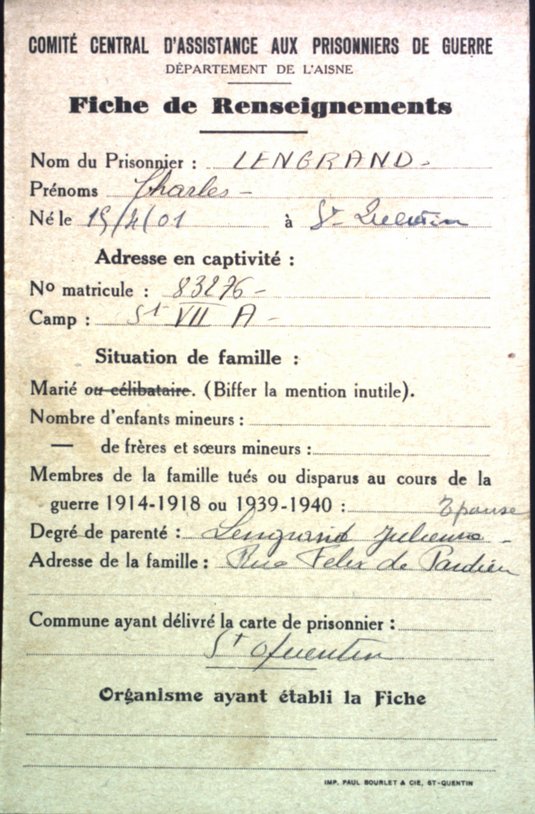 COMITÉ CENTRAL D'ASSISTANCE AUX PRISONNIERS DE GUERRE
DÉPARTEMENT DE L'AISNE
Fiche de Renseignements
Nom du Prisonnier : LENGRAND -
Prénoms Charles -
Né le 19/2/01 à St Quentin
Adresse en captivité :
No matricule : 83276 -
Camp : St VII A -
Situation de famille :
Marié ou célibataire. (Biffer la mention inutile).
Nombre d'enfants mineurs :
— de frères et sœurs mineurs :
Membres de la famille tués ou disparus au cours de la
guerre 1914-1918 ou 1939-1940 : Epouse
Degré de parenté : Lengrand Julienne -
Adresse de la famille : Rue Felix de Pardieu
Commune ayant délivré la carte de prisonnier :
St Quentin
Organisme ayant établi la Fiche
IMP. PAUL BOURLET & CIE, ST-QUENTIN